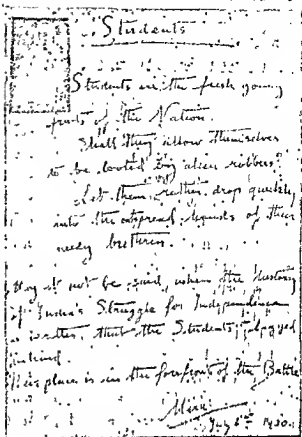 Students
Students are the fresh young
fruits of the Nation.
Shall they allow themselves
to be looted by alien robbers?
Let them rather drop quickly
into the outspread hands of their
needy brethren.
May it not be said, when the History
of India's Struggle for Independence
is written, that the Students lagged
behind.
place is in the forefront of the Battle
July 1930.